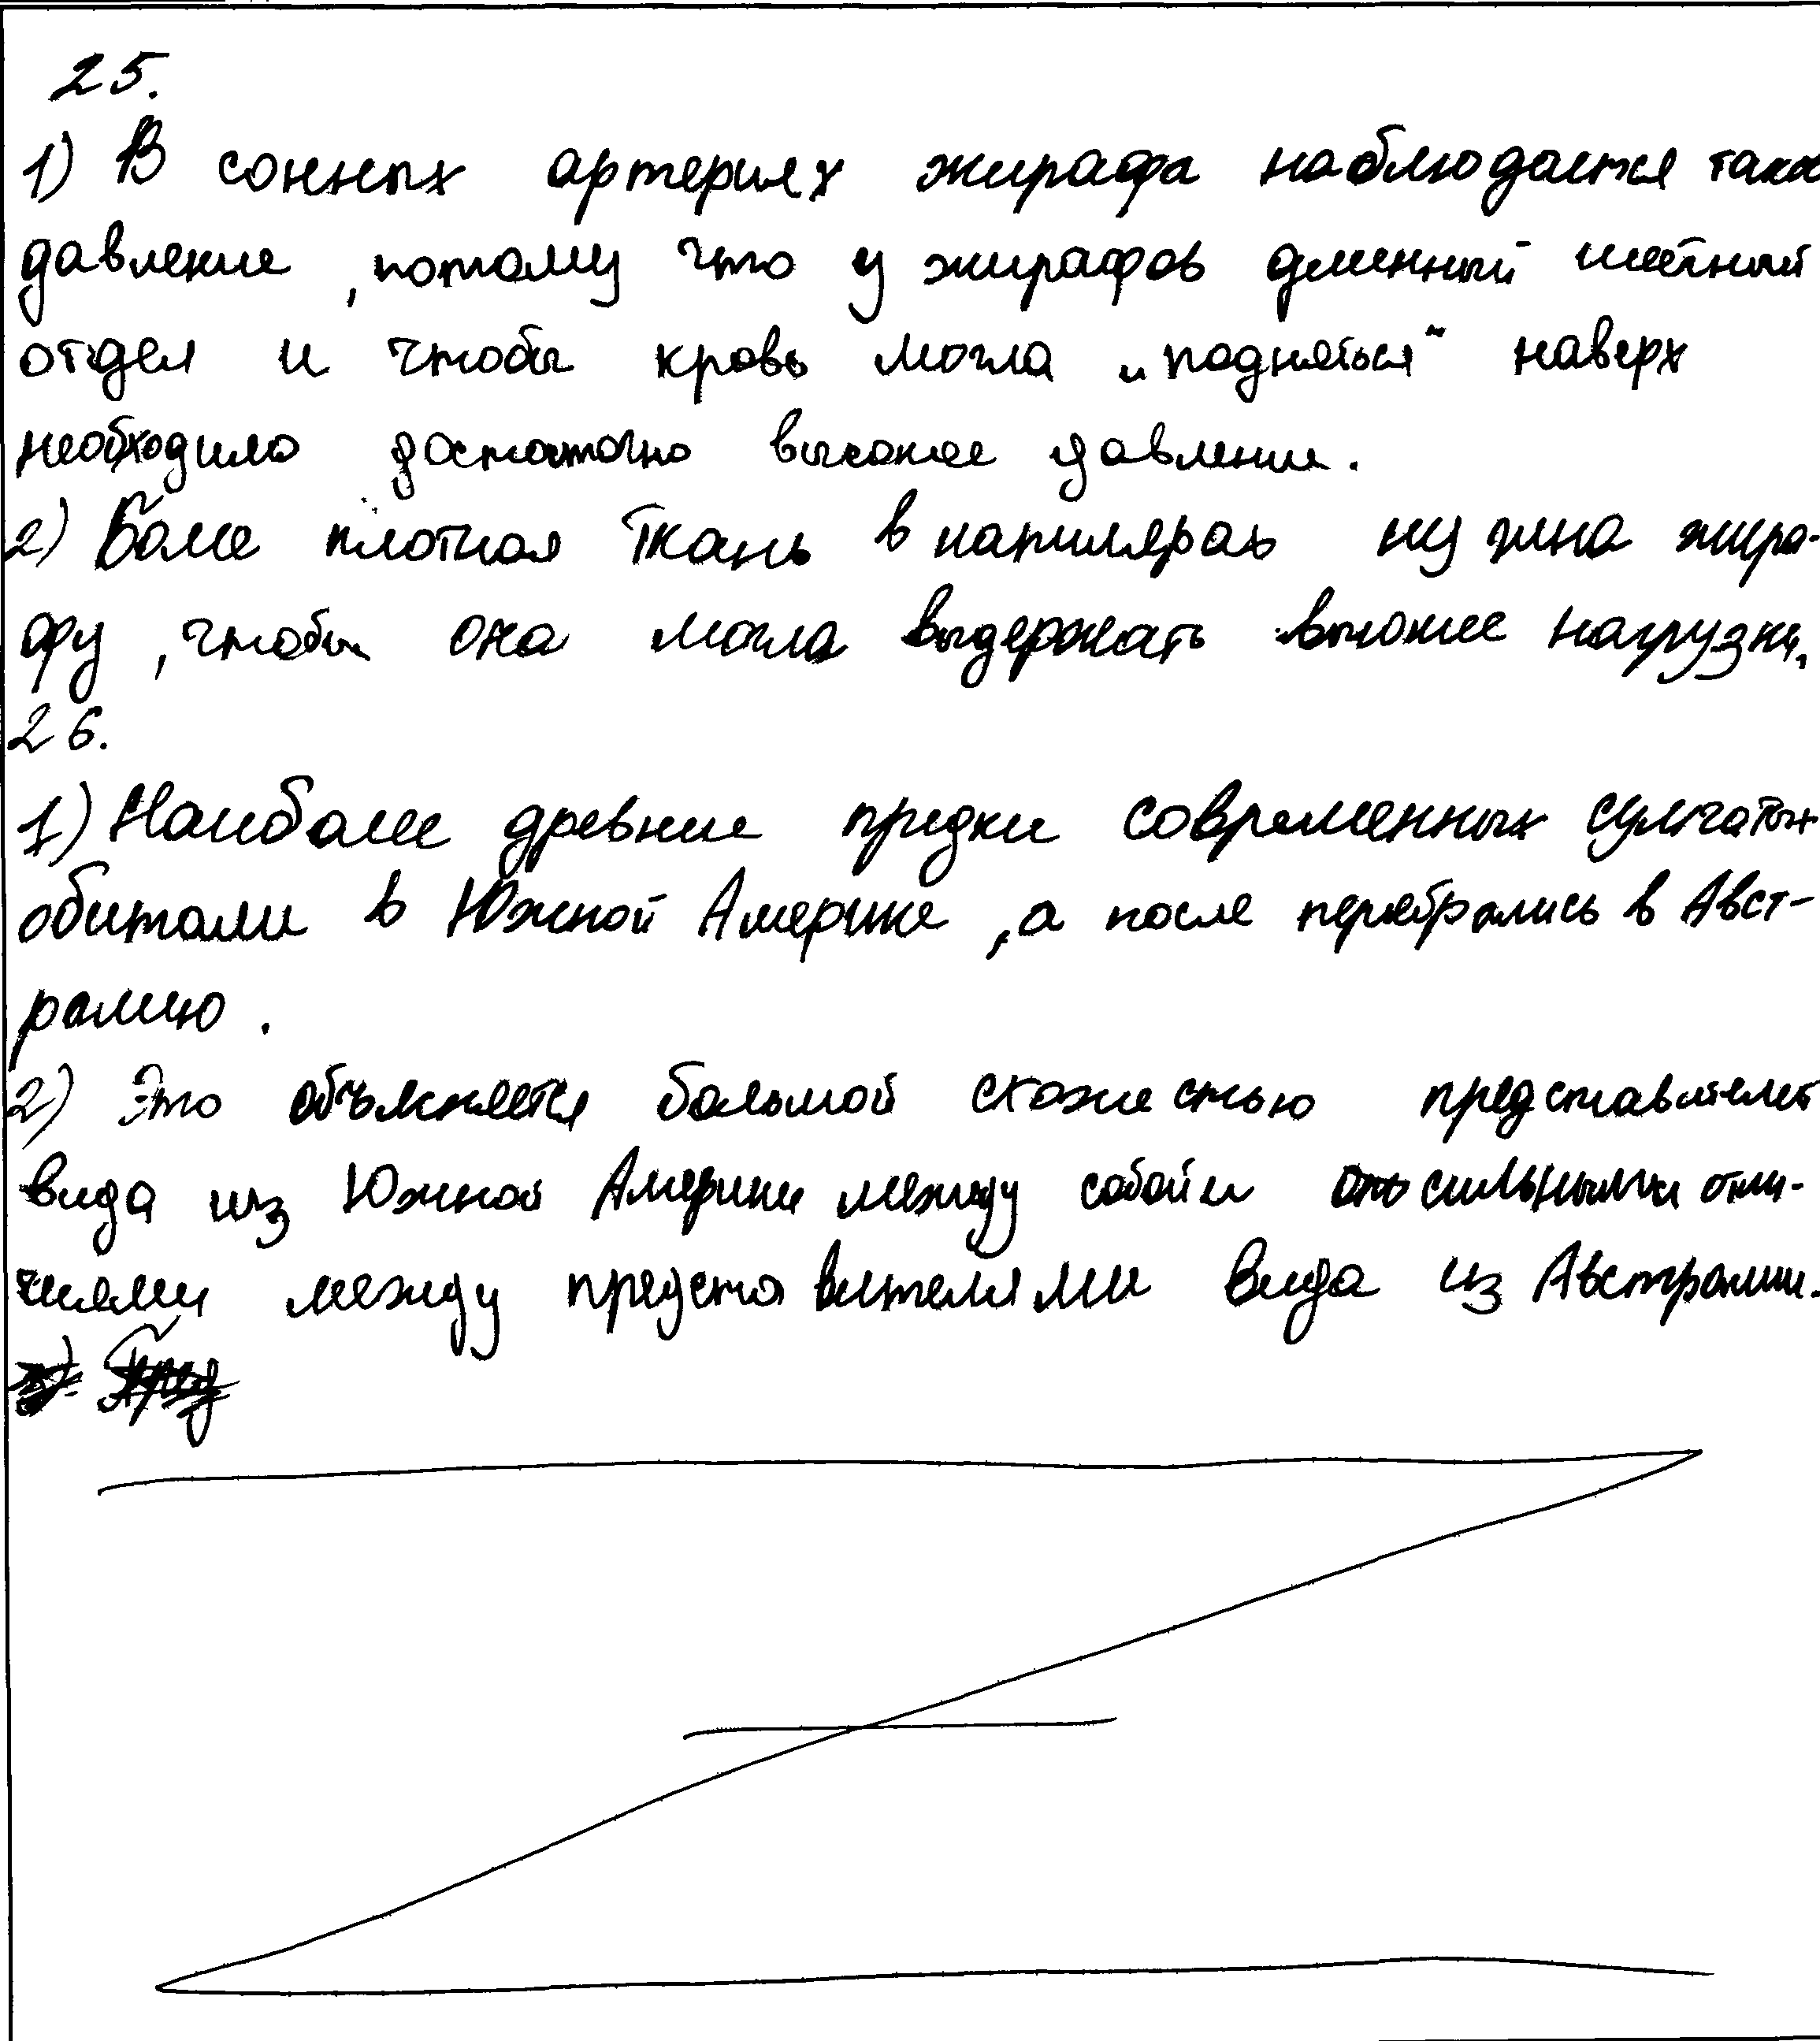 25.
1) В сонных артериях жирафа наблюдается такое
давление, потому что у жирафов длинный шейный
отдел и чтобы кровь могла „подняться" наверх
необходимо достаточно высокое давление.
2) Более плотная ткань в капилярах нужна жира-
фу, чтобы она могла выдержать высокие нагрузки.
26.
1) Наиболее древние предки современных сумчатых
обитали в Южной Америке, а после перебрались в Авст-
ралию.
2) Это объясняется большой схожестью представителей
вида из Южной Америки между собой и сильными отли-
чиями между представителями вида из Австралии.